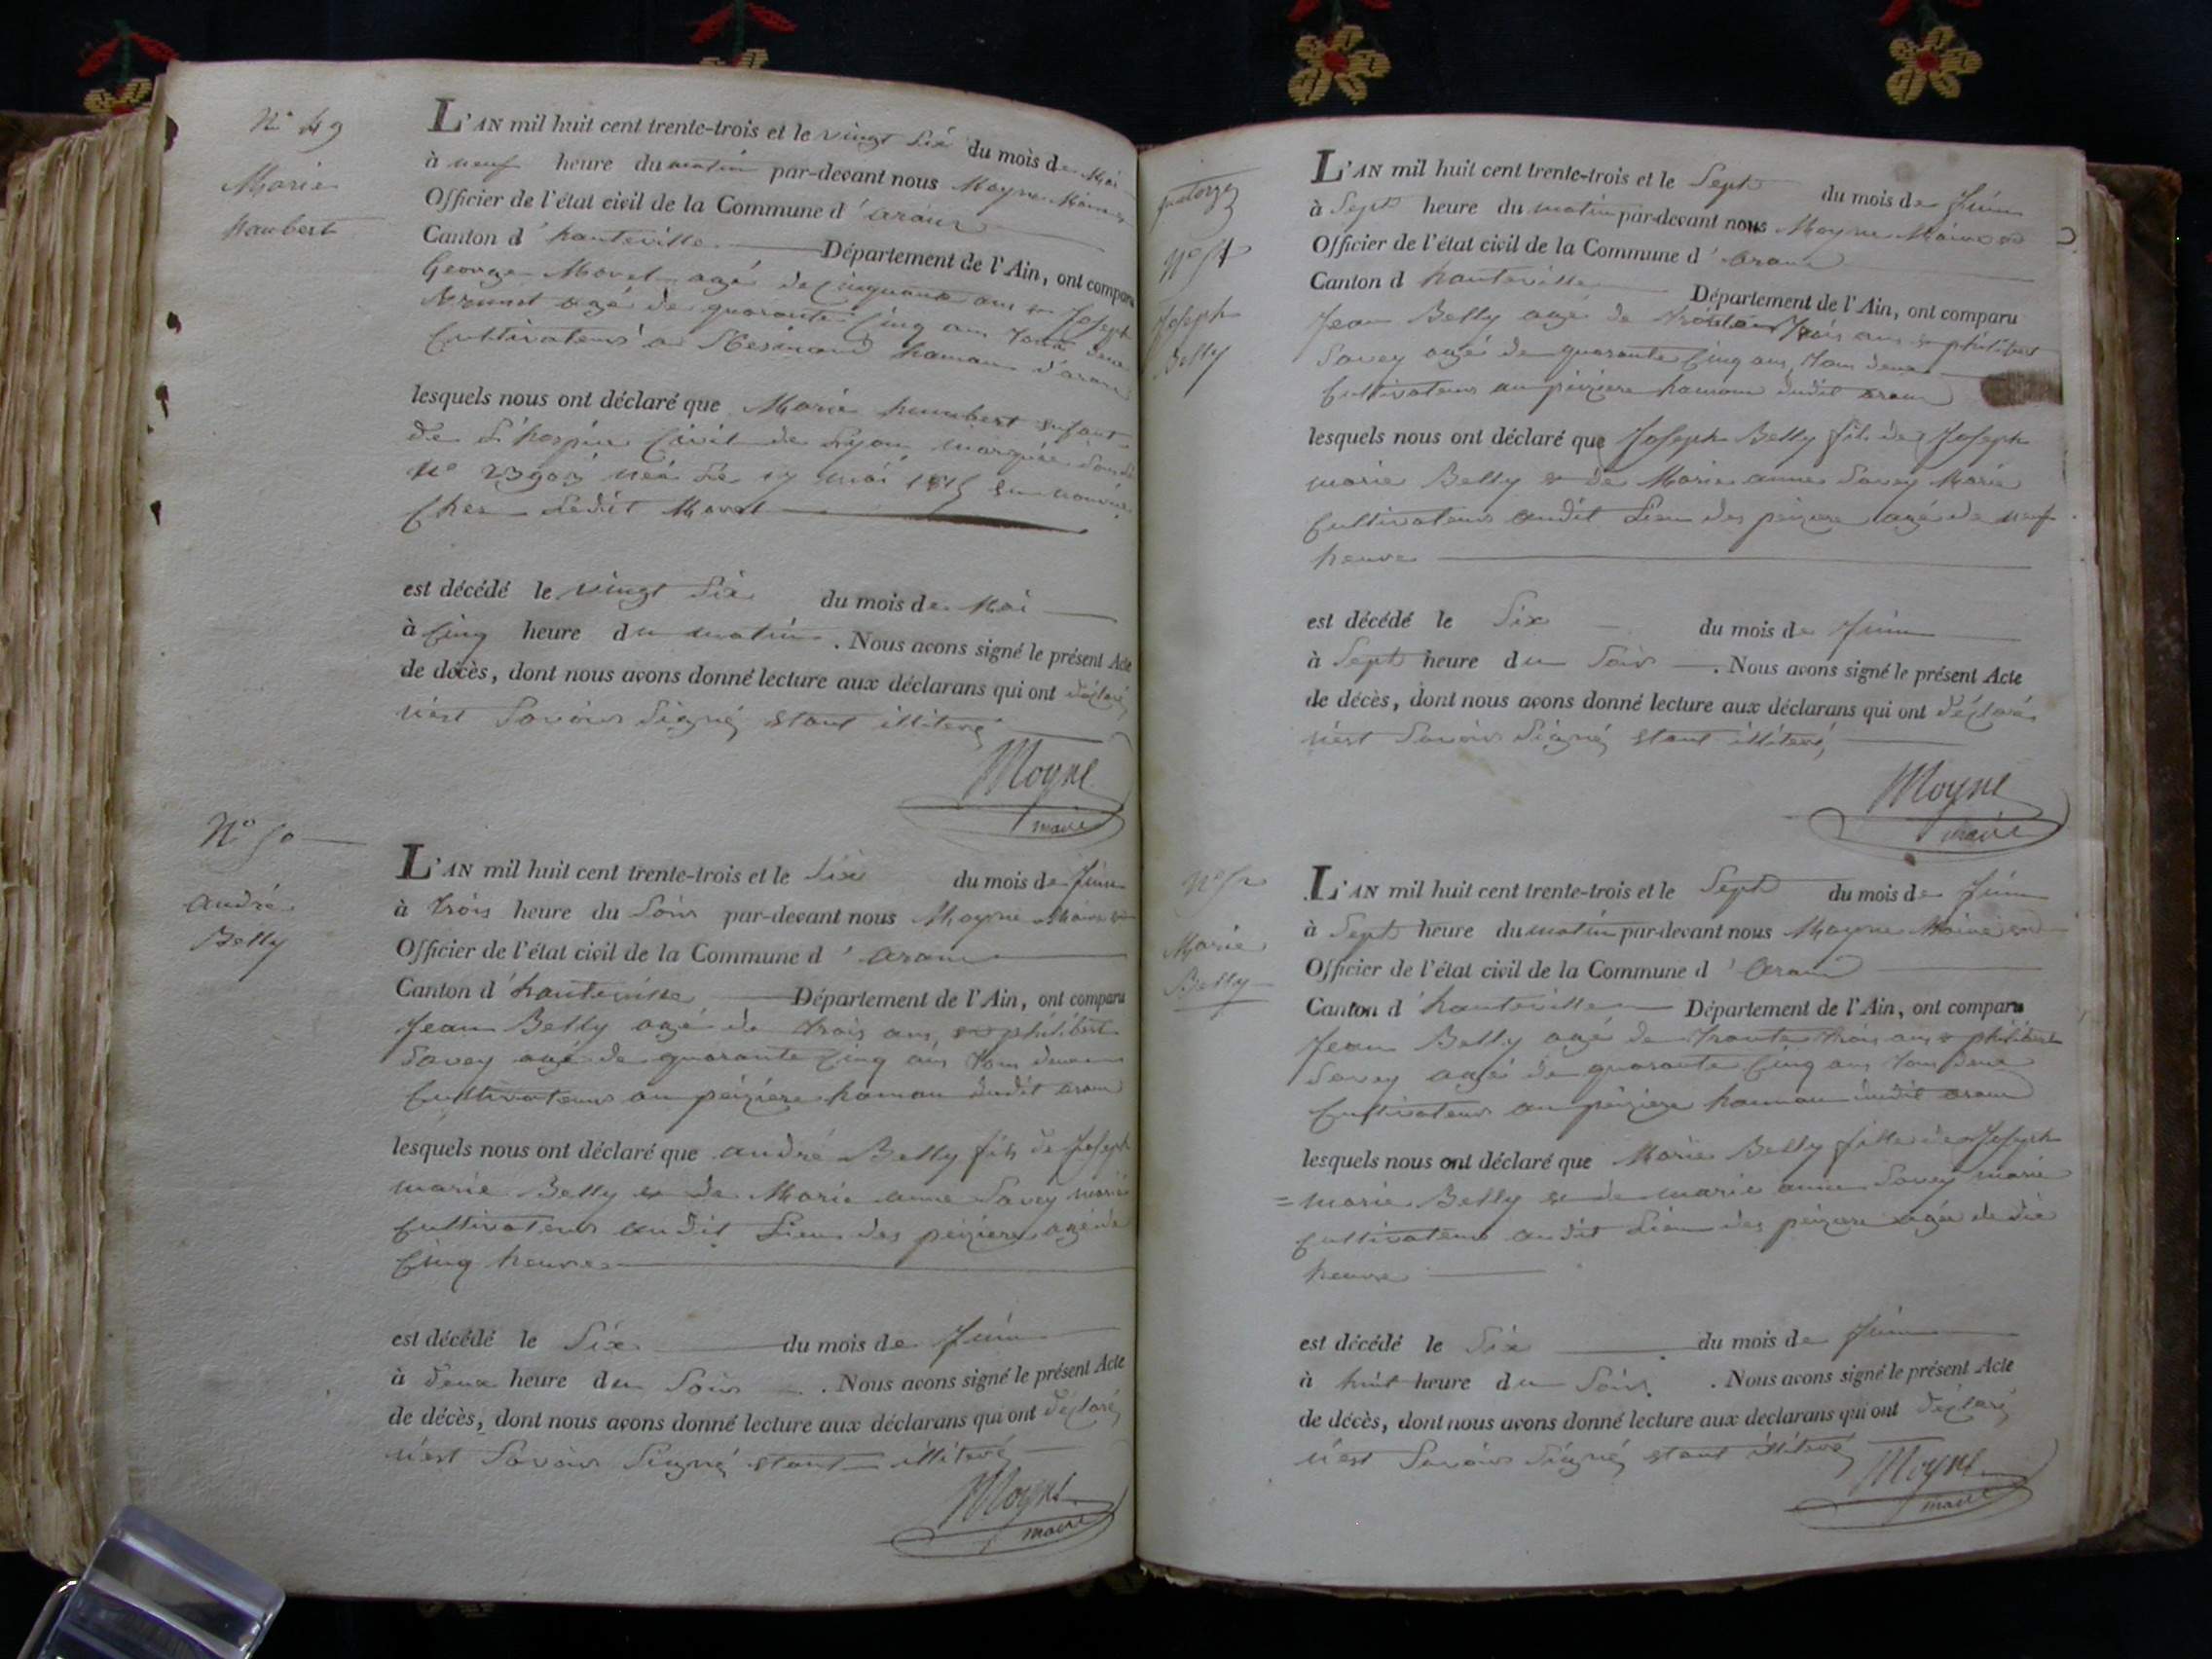 N° 49
Marie
humbert
L'AN mil huit cent trente-trois et le vingt Six du mois de Mai
à neuf heure du matin par-devant nous Moyne Maire
Officier de l'état civil de la Commune d'aranc
Canton d'hauteville Département de l'Ain, ont comparu
George Morel agé de Cinquante ans et Joseph
agé de quarante Cinq ans Tous deux
Cultivateurs a hamau d'aranc
lesquels nous ont déclaré que Marie humbert enfant
de L'hospice Civil de Lyon,
N° née Le 17 mai
Chez Ledit Morel
est décédé le vingt Six du mois de Mai
à Cinq heure du matin. Nous avons signé le présent Acte
de décès, dont nous avons donné lecture aux déclarans qui ont déclaré
n'est Savoir Signé étant illiteré
Moyne
maire
N° 50
andré
Belly
L'AN mil huit cent trente-trois et le Six du mois de Juin
à trois heure du Soir par-devant nous Moyne Maire
Officier de l'état civil de la Commune d'aranc
Canton d'hauteville Département de l'Ain, ont comparu
Jean Belly agé de trois ans, et philibert
Savey agé de quarante Cinq ans Tous deux
Cultivateurs au peiziere hamau dudit aranc
lesquels nous ont déclaré que andré Belly fils de Joseph
marie Belly et de Marie anne Savey marié
Cultivateurs audit Lieu des peiziere agé de
Cinq heures
est décédé le Six du mois de Juin
à deux heure du Soir. Nous avons signé le présent Acte
de décès, dont nous avons donné lecture aux déclarans qui ont déclaré
n'est Savoir Signé étant illiteré
Moyne
maire
quatorze
N° 51
Joseph
Belly
L'AN mil huit cent trente-trois et le Sept du mois de Juin
à Sept heure du matin par-devant nous Moyne Maire et
Officier de l'état civil de la Commune d'aranc
Canton d hauteville Département de l'Ain, ont comparu
Jean Belly agé de trois ans et philibert
Savey agé de quarante Cinq ans, Tous deux
Cultivateurs au peiziere hamau dudit aranc
lesquels nous ont déclaré que Joseph Belly fils de Joseph
marie Belly et de Marie anne Savey Marié
Cultivateurs audit Lieu des peiziere agé de neuf
heure
est décédé le Six du mois de Juin
à Sept heure du Soir. Nous avons signé le présent Acte
de décès, dont nous avons donné lecture aux déclarans qui ont déclaré
n'est Savoir Signé étant illiteré
Moyne
maire
N° 52
Marie
Belly
L'AN mil huit cent trente-trois et le Sept du mois de Juin
à Sept heure du matin par-devant nous Moyne Maire et
Officier de l'état civil de la Commune d'aranc
Canton d'hauteville Département de l'Ain, ont comparu
Jean Belly agé de trente trois ans et philibert
Savey agé de quarante Cinq ans Tous deux
Cultivateurs au peiziere hamau dudit aranc
lesquels nous ont déclaré que Marie Belly fille de Joseph
= marie Belly et de marie anne Savey marié
Cultivateurs audit Lieu des peiziere agée de dix
heure
est décédé le Six du mois de Juin
à huit heure du Soir. Nous avons signé le présent Acte
de décès, dont nous avons donné lecture aux declarans qui ont déclaré
n'est Savoir Signé étant illiteré
Moyne
maire